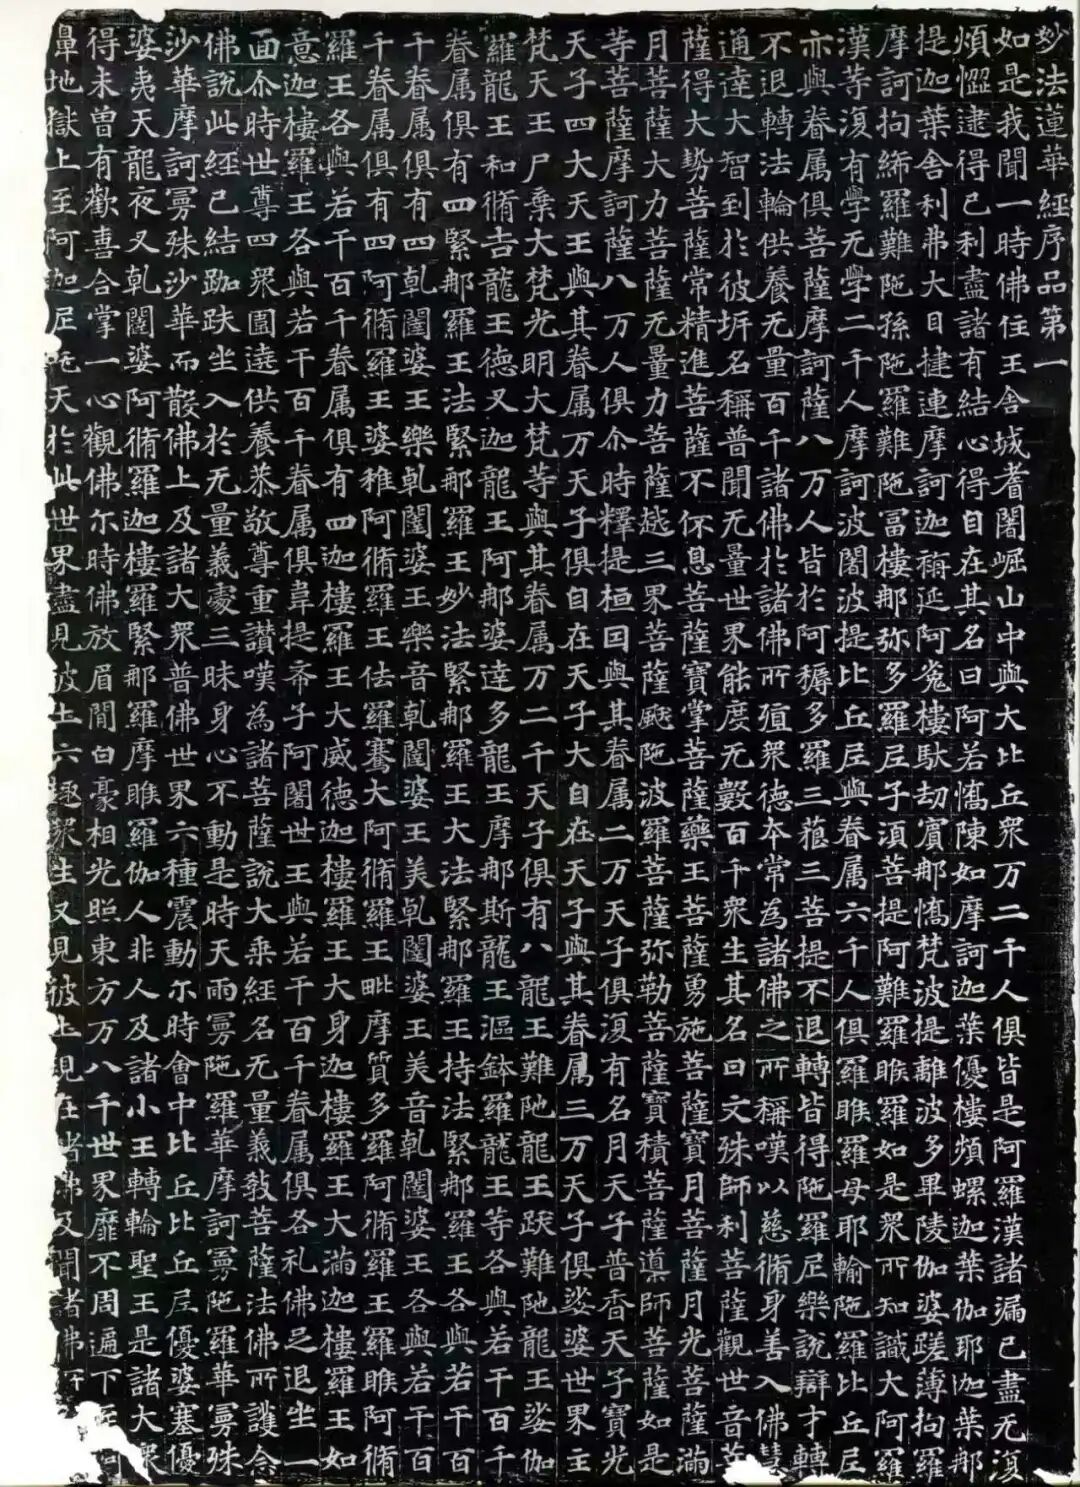 妙法蓮華經序品第一
如是我聞一時佛住王舍城耆闍崛山中與大比丘眾万二千人俱皆是阿羅漢諸漏已盡无復
煩惱逮得已利盡諸有結心得自在其名曰阿若憍陳如摩訶迦葉優樓頻螺迦葉伽耶迦葉那
提迦葉舍利弗大目揵連摩訶迦栴延阿㝹樓馱劫賓那憍梵波提離波多畢陵伽婆蹉薄拘羅
摩訶拘絺羅難陁孫陁羅難陁冨樓那弥多羅尼子湏菩提阿難羅睺羅如是眾所知識大阿羅
漢等復有學无學二千人摩訶波闍波提比丘尼與眷属六千人俱羅睺羅母耶輸陁羅比丘尼
亦與眷属俱菩薩摩訶薩八万人皆於阿耨多羅三藐三菩提不退轉皆得陁羅尼樂說辯才轉
不退轉法輪供養无量百千諸佛於諸佛所殖眾德本常為諸佛之所稱嘆以慈脩身善入佛慧
通達大智到於彼岸名稱普聞无量世界能度无數百千眾生其名曰文殊師利菩薩觀世音菩
薩得大勢菩薩常精進菩薩不休息菩薩寶掌菩薩藥王菩薩勇施菩薩寶月菩薩月光菩薩滿
月菩薩大力菩薩无量力菩薩越三界菩薩颰陁波羅菩薩弥勒菩薩寶積菩薩導師菩薩如是
等菩薩摩訶薩八万人俱尒時釋提桓因與其眷属二万天子俱復有名月天子普香天子寶光
天子四大天王與其眷属万天子俱自在天子大自在天子與其眷属三万天子俱娑婆世界主
梵天王尸棄大梵光明大梵等與其眷属万二千天子俱有八龍王難陁龍王跋難陁龍王娑伽
羅龍王和脩吉龍王德叉迦龍王阿那婆達多龍王摩那斯龍王漚鉢羅龍王等各與若干百千
眷属俱有四緊那羅王法緊那羅王妙法緊那羅王大法緊那羅王持法緊那羅王各與若干百
千眷属俱有四乹闥婆王樂乹闥婆王樂音乹闥婆王美乹闥婆王美音乹闥婆王各與若干百
千眷属俱有四阿脩羅王婆稚阿脩羅王佉羅騫大阿脩羅王毗摩質多羅阿脩羅王羅睺阿脩
羅王各與若干百千眷属俱有四迦樓羅王大威德迦樓羅王大身迦樓羅王大滿迦樓羅王如
意迦樓羅王各與若干百千眷属俱韋提希子阿闍世王與若干百千眷属俱各礼佛足退坐一
面尒時世尊四眾圍遶供養恭敬尊重讃嘆為諸菩薩說大乘經名无量義敎菩薩法佛所護念
佛說此經已結跏趺坐入於无量義處三昧身心不動是時天雨㝹陁羅華摩訶㝹陁羅華㝹殊
沙華摩訶㝹殊沙華而散佛上及諸大眾普佛世界六種震動尒時會中比丘比丘尼優婆塞優
婆夷天龍夜叉乹闥婆阿脩羅迦樓羅緊那羅摩睺羅伽人非人及諸小王轉輪聖王是諸大眾
得未曾有歡喜合掌一心觀佛尒時佛放眉間白豪相光照東方万八千世界靡不周遍下至阿
鼻地獄上至阿迦尼吒天於此世界盡見彼土六趣眾生又見彼土見在諸佛及聞諸佛所